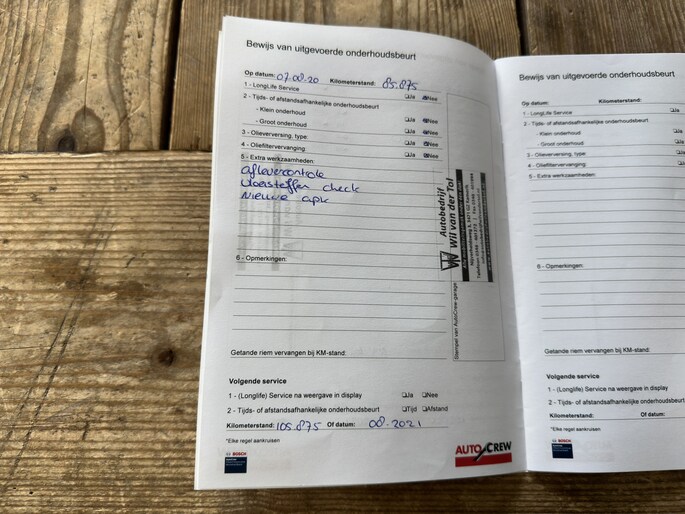 Bewijs van uitgevoerde onderhoudsbeurt
Op datum: 07-08-20 Kilometerstand: 85.875
1 - LongLife Service Ja Nee
2 - Tijds- of afstandsafhankelijke onderhoudsbeurt
- Klein onderhoud Ja Nee
- Groot onderhoud Ja Nee
3 - Olieverversing, type: Ja Nee
4 - Oliefiltervervanging Ja Nee
5 - Extra werkzaamheden:
aflevercontrole
vloeistoffen check
Nieuwe apk
6 - Opmerkingen:
Autobedrijf
Wil van der Tol
Stempel van AutoCrew-garage:
Getande riem vervangen bij KM-stand:
Volgende service
1 - (Longlife) Service na weergave in display Ja Nee
2 - Tijds- of afstandsafhankelijke onderhoudsbeurt Tijd Afstand
Kilometerstand: 105.875 Of datum: 08-2021
*Elke regel aankruisen
BOSCH
AUTO CREW
Bewijs van uitgevoerde onderhoudsbeurt
Op datum: Kilometerstand:
1 - LongLife Service Ja
2 - Tijds- of afstandsafhankelijke onderhoudsbeurt
- Klein onderhoud Ja
- Groot onderhoud Ja
3 - Olieverversing, type: Ja
4 - Oliefiltervervanging Ja
5 - Extra werkzaamheden:
6 - Opmerkingen:
Getande riem vervangen bij KM-stand:
Volgende service
1 - (Longlife) Service na weergave in display
2 - Tijds- of afstandsafhankelijke onderhoudsbeurt
Kilometerstand: Of datum:
*Elke regel aankruisen
BOSCH